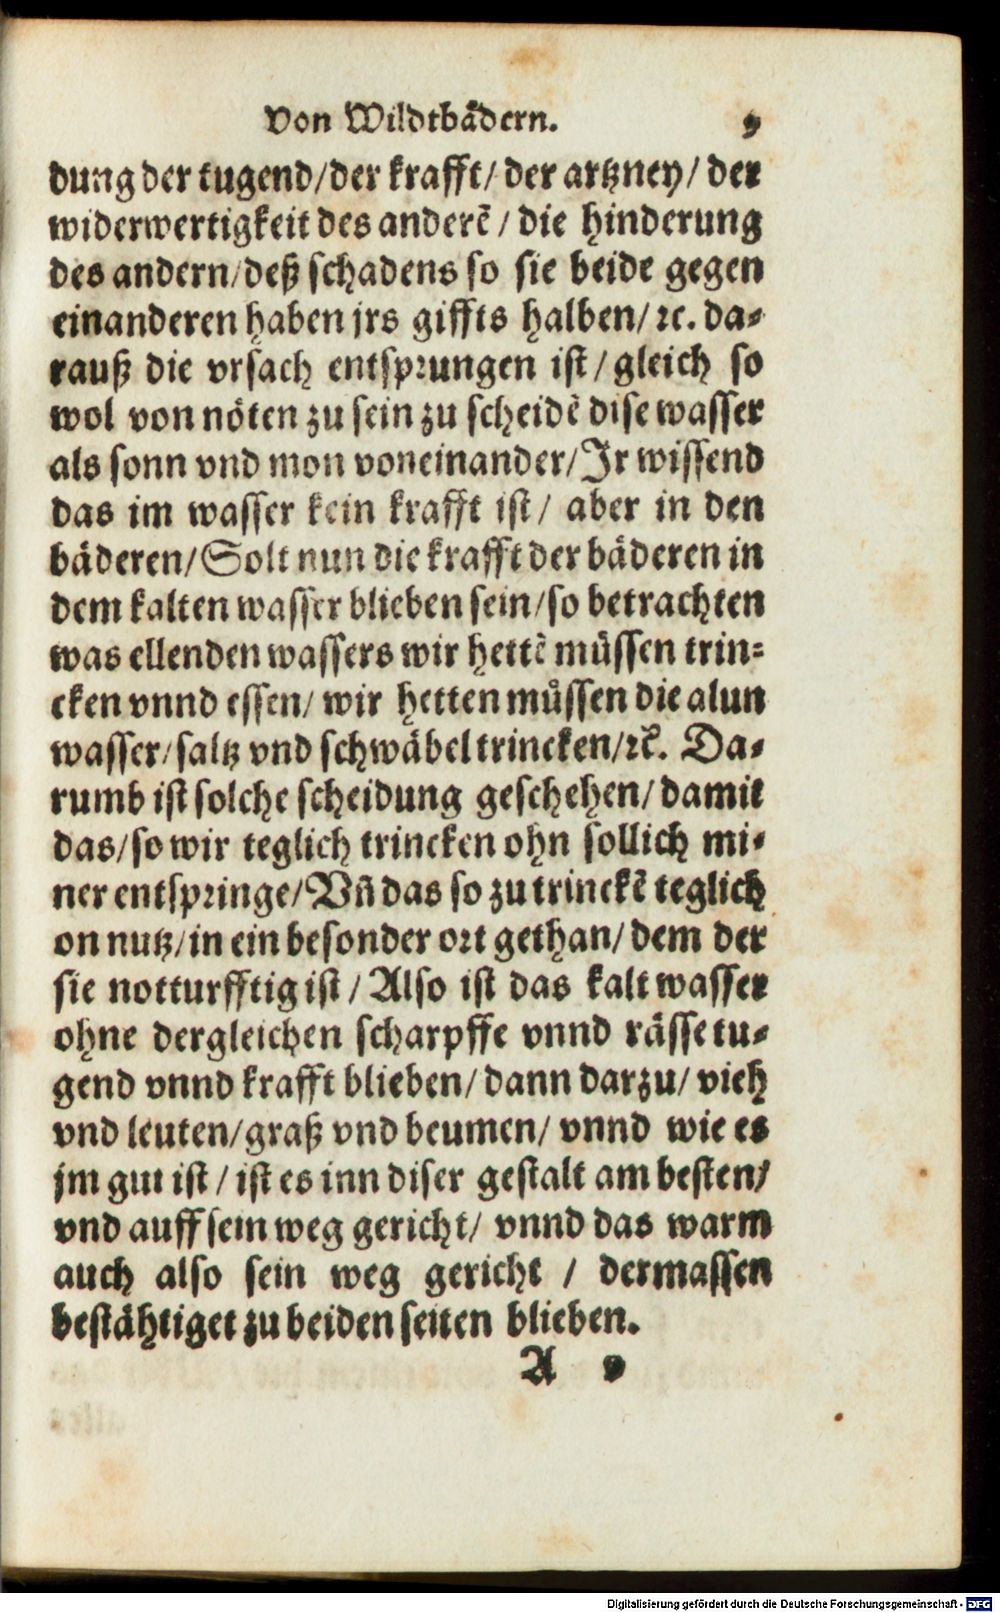 Von Wildtbädern. 9
dung der tugend/der krafft/ der artzney/ der
widerwertigkeit des anderẽ / die hinderung
des andern/deß schadens so sie beide gegen
einanderen haben jrs giffts halben/ ꝛc. da-
rauß die vrsach entsprungen ist / gleich so
wol von nöten zu sein zu scheidẽ dise wasser
als sonn vnd mon voneinander/Jr wissend
das im wasser kein krafft ist/ aber in den
bäderen/Solt nun die krafft der bäderen in
dem kalten wasser blieben sein/so betrachten
was ellenden wassers wir hettẽ müssen trin-
cken vnnd essen/ wir hetten müssen die alun
wasser/saltz vnd schwäbel trincken/ꝛc. Da-
rumb ist solche scheidung geschehen/damit
das/so wir teglich trincken ohn sollich mi-
ner entspringe/Vñ das so zu trinckẽ teglich
on nutz/in ein besonder ort gethan/dem der
sie notturfftig ist / Also ist das kalt wasser
ohne dergleichen scharpffe vnnd rässe tu-
gend vnnd krafft blieben/dann darzu/ vieh
vnd leuten/graß vnd beumen/ vnnd wie es
jm gut ist / ist es inn diser gestalt am besten/
vnd auff sein weg gericht/ vnnd das warm
auch also sein weg gericht / dermassen
bestähtiget zu beiden seiten blieben.
A 9
Digitalisierung gefördert durch die Deutsche Forschungsgemeinschaft - DFG